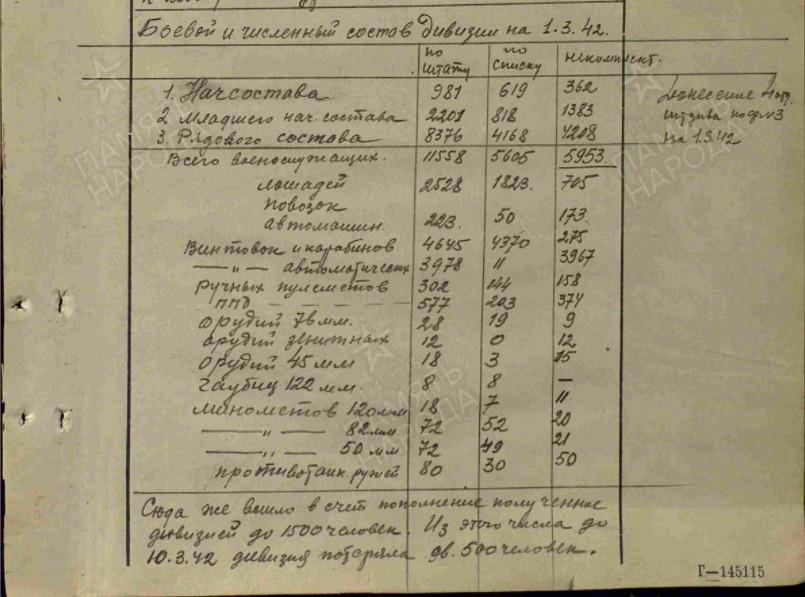 Боевой и численный состав дивизии на 1.3.42.
по штату по списку некомплект.
1. Начсостава 981 619 362
2 Младшего нач. состава 2201 818 1383
3. Рядового состава 8376 4168 4208
Всего военослужащих. 11558 5605 5953
лошадей 2528 1823. 705
повозок
автомашин. 223. 50 173.
Винтовок и карабинов 4645 4370 275
—„— автоматических 3978 11 3967
Ручных пулеметов 302 144 158
ППД 577 203 374
орудий 76 мм. 28 19 9
орудий зенитных 12 0 12
орудий 45 мм 18 3 15
гаубиц 122 мм. 8 8 —
минометов 120мм 18 7 11
—„— 82мм 72 52 20
—„— 50 мм 72 49 21
противотанк. ружей 80 30 50
Донесение
штдива по ф №3
на 1.3.42
Сюда же вошло в счет пополнение полученное
дивизией до 1500 человек. Из этого числа до
10.3.42 дивизия потеряла св. 500 человек.
Г—145115
ПАМЯТЬ НАРОДА